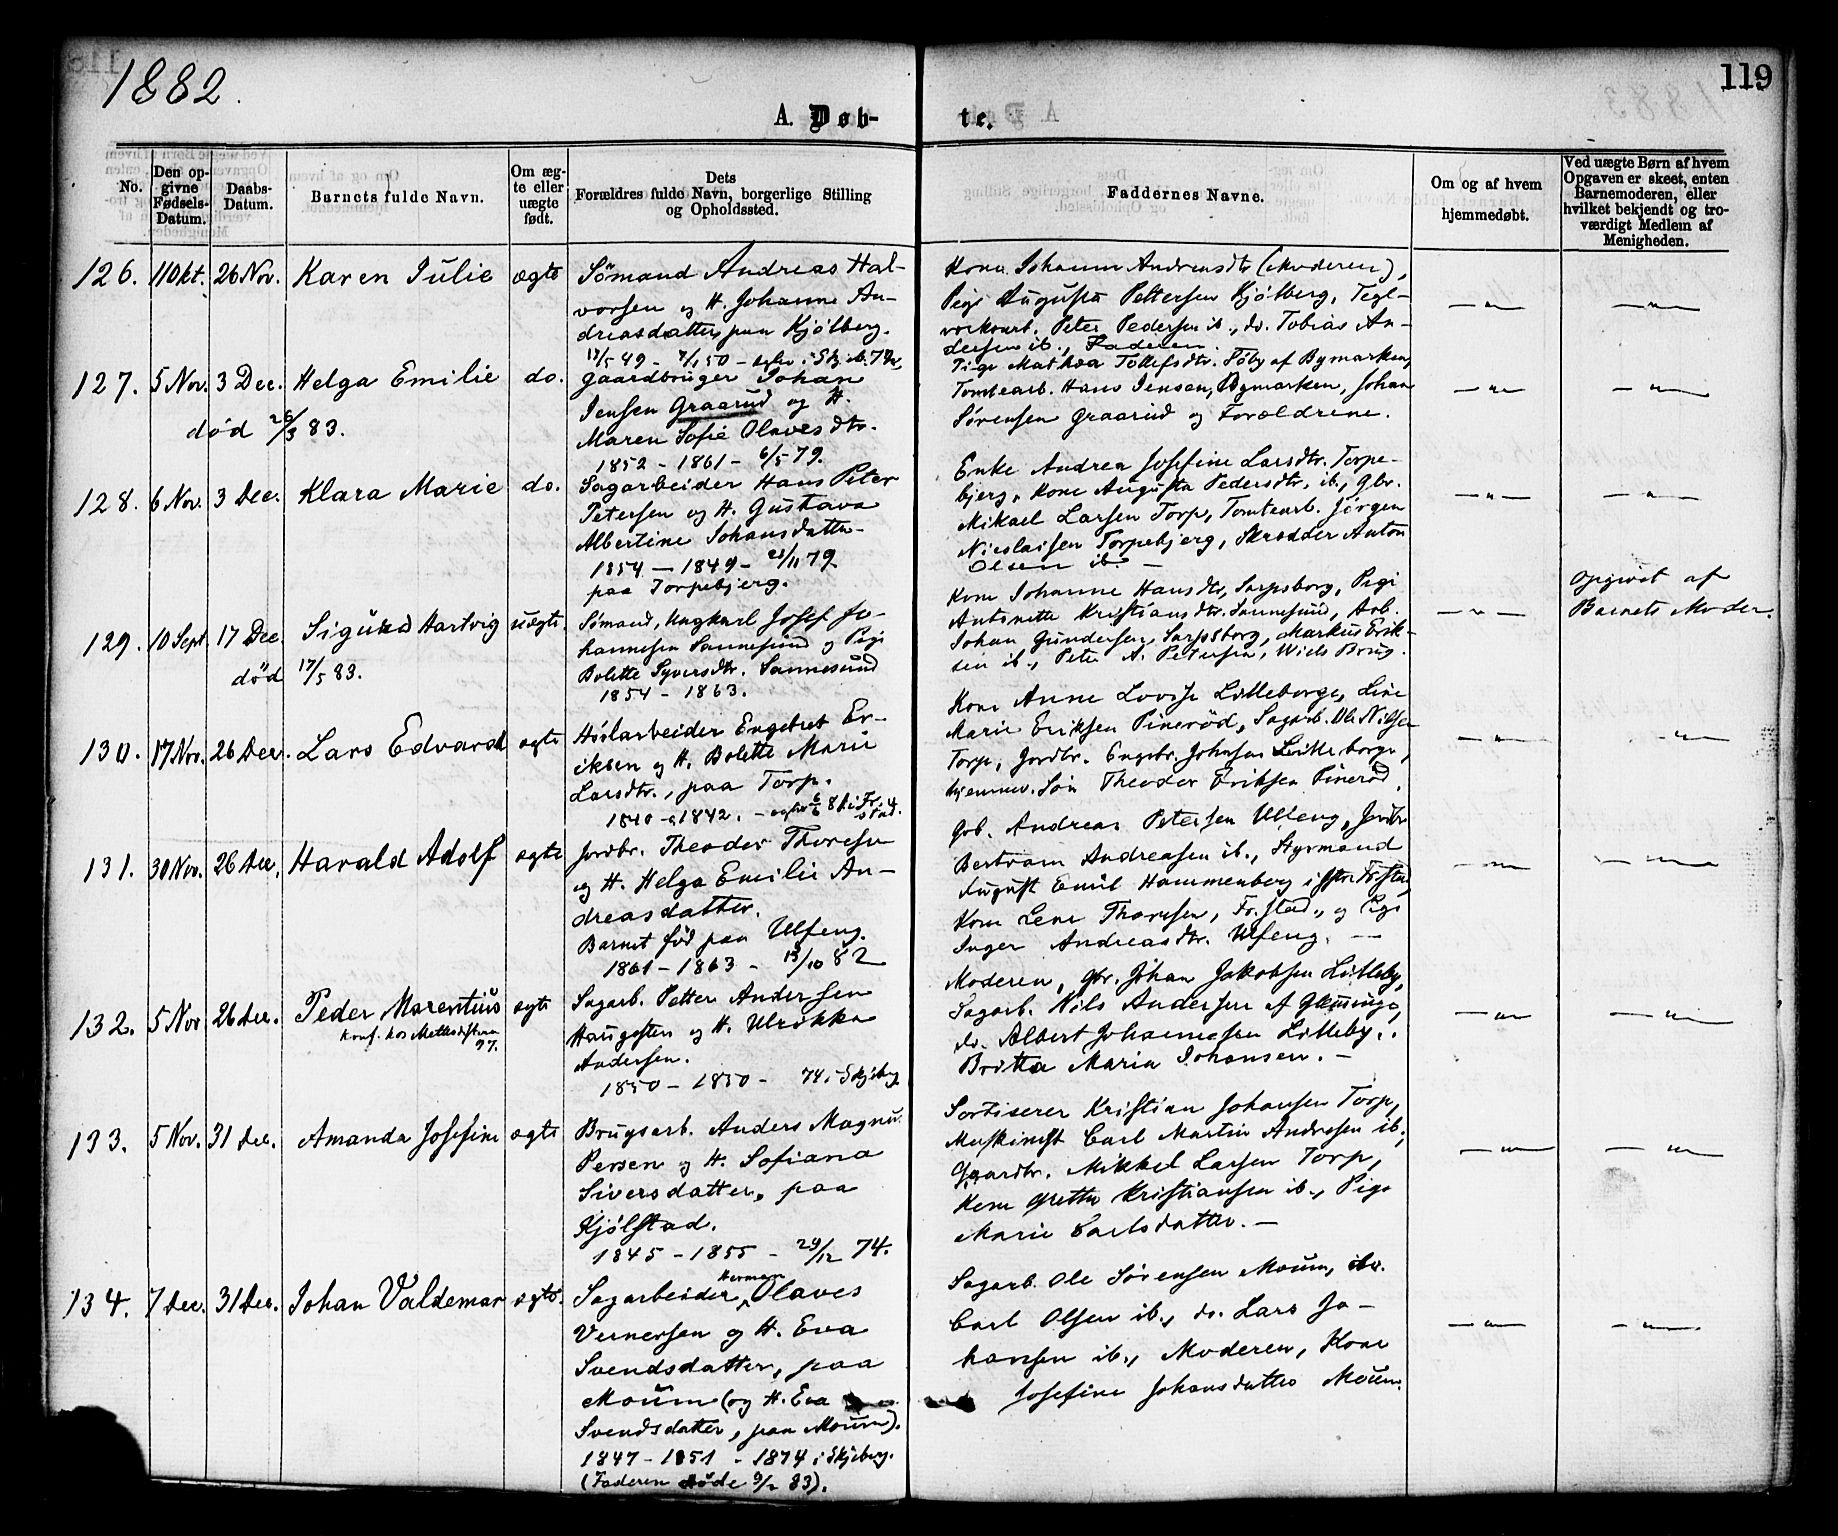 1882.
119
A. Døb-
te.
No.
Den op-
givne
Fødsels-
Datum.
Daabs-
Datum.
Barnets fulde Navn.
Om æg-
te eller
uægte
født.
Dets
Forældres fulde Navn, borgerlige Stilling
og Opholdssted.
Faddernes Navne.
Om og af hvem
hjemmedøbt.
Ved uægte Børn af hvem
Opgaven er skeet, enten
Barnemoderen, eller
hvilket bekjendt og tro-
værdigt Medlem af
Menigheden.
126. 11 Okt. 26 Nov. Karen Julie ægte
Sømand Andreas Hal-
vorsen og H. Johanne An-
dreasdatter, paa Kjølberg.
Kone Johanne Andreasdtr (Moderen),
Pige Augusta Pettersen Kjølberg, Tegl-
verksarb. Peter Pedersen ib., do. Tobias An-
dersen ib., Faderen.
127. 5 Nov. 3 Dec. Helga Emilie do.
død 28/3 83.
Gaardbruger Johan
Jensen Graarud og H.
Maren Sofie Olavesdtr.
1852 - 1861 - 6/5 79.
Pige Mathea Tollefsdtr. Foby af Bymarken,
Tomtearb. Hans Jensen, Bymarken, Johan
Sørensen Graarud og Forældrene.
128. 6 Nov. 3 Dec. Klara Marie do.
Sagarbeider Hans Peter
Petersen og H. Gustava
Albertine Johansdatter
1854 - 1849 - 23/11 79
paa Torpebjerg.
Enke Andrea Josefine Larsdtr. Torpe-
bjerg, Kone Augusta Pedersdtr. ib., Gbr.
Mikael Larsen Torp, Tomtearb. Jørgen
Nicolaisen Torpebjerg, Skrædder Anton
Olsen ib.
129. 10 Sept. 17 Dec. Sigurd Hartvig uægte.
død 17/5 83.
Sømand, Ungkarl Josef Jo-
hannesen Sannesund og Pige
Bolette Syversdtr. Sannesund
1854 - 1863.
Kone Johanne Hansdtr. Sarpsborg, Pige
Antonette Kristiansdtr. Sannesund, Arb.
Johan Gundersen, Sarpsborg, Markus Erik-
sen ib., Peter A. Petersen, Brug.
Opgivet af
Barnets Moder.
130. 17 Nov. 26 Dec. Lars Edvard ægte
Engebret Er-
iksen og H. Bolette Marie
Larsdtr., paa Torp.
1840 - 1842.
Kone Anne Lovise Lilleborge, Line
Marie Eriksen Pinerød, Sagarb. Ole Nilsen
Torp, Jordbr. Engebr. Johnsen Lilleborge,
hjemmev. Søn Theodor Eriksen Pinerød.
131. 30 Nov. 26 Dec. Harald Adolf ægte
Jordbr. Theodor Thoresen
og H. Helga Emilie An-
dreasdatter.
Barnet født paa Ulfeng.
1861 - 1863 - 13/10 82
Gbr. Andreas Petersen Ulfeng, Jordbr
Bertram Andreasen ib., Styrmand
August Emil Hammenberg
Kone Lene Thoresen, Fr.stad, og Pige
Inger Andreasdtr. Ulfeng.
132. 5 Nov 26 Dec. Peder Marentius ægte
konf. hos
97.
Sagarb. Petter Andersen
Haugesten og H. Ulrikka
Andersen.
1850 - 1850 - 74 i Skjeberg
Moderen, Gbr. Johan Jakobsen Lilleby,
Sagarb. Nils Andersen af Glemminge,
do. Albert Johannesen Lilleby.
Britta Maria Johansen. -
133. 5 Nov. 31 Dec. Amanda Josefine ægte
Brugsarb. Anders Magnus
Persen og H. Sofiana
Siversdatter, paa
Kjølstad.
1845 - 1855 - 29/12 74.
Sortiserer Kristian Johansen Torp,
Maskinist Carl Martin Andresen ib.,
Gaardbr. Mikkel Larsen Torp,
Kone Grethe Kristiansen ib., Pige
Marie Carlsdatter. -
134. 7 Dec. 31 Dec. Johan Valdemar ægte.
Herman
Sagarbeider Olaves
Vernersen og H. Eva
Svendsdatter, paa
Moum (og H. Eva
Svendsdatter, paa Moum).
1847 - 1851 - 1874 i Skjeberg.
(Faderen døde 9/2 83).
Sagarb. Ole Sørensen Moum, do.
Carl Olsen ib., do. Lars Jo-
hansen ib., Moderen, Kone
Josefine Johansdatter Moum.